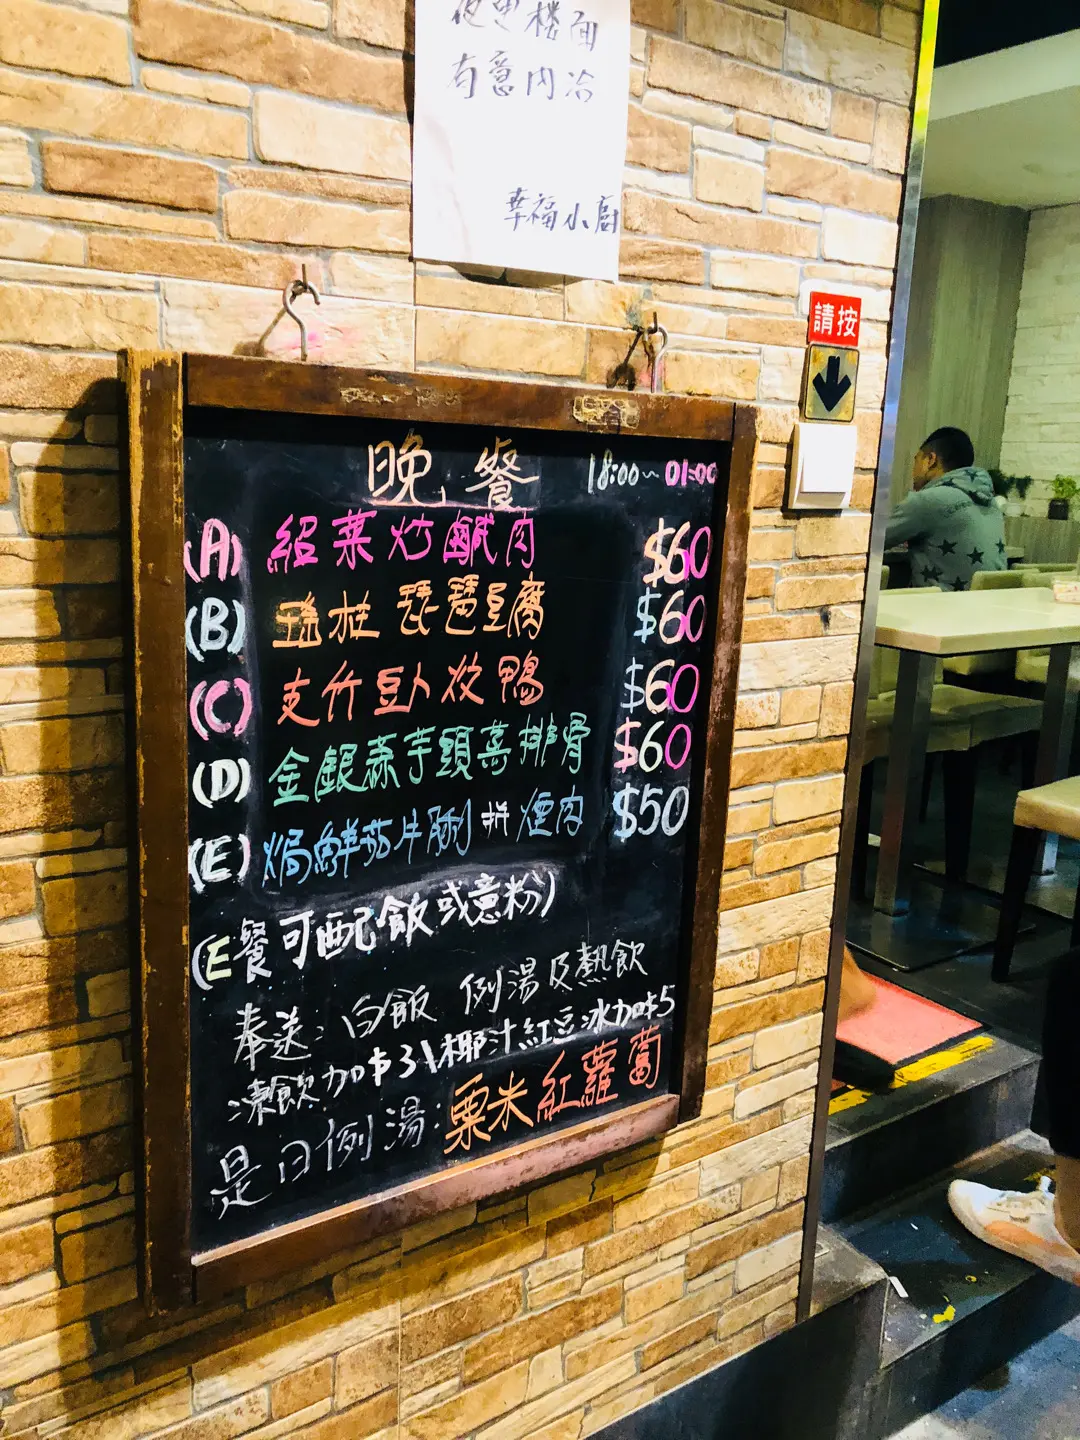 夜更楼面
有意内洽
幸福小廚
請按
晚餐 18:00~01:00
(A) 紹菜炒鹹肉 $60
(B) 瑤柱琵琶豆腐 $60
(C) 支竹豆卜炆鴨 $60
(D) 金銀蒜芋頭蒸排骨 $60
(E) 焗鮮茄牛脷拼煙肉 $50
(E餐可配飯或意粉)
奉送:白飯 例湯及熱飲
凍飲加$3\椰汁紅豆冰加$5
是日例湯:粟米紅蘿蔔